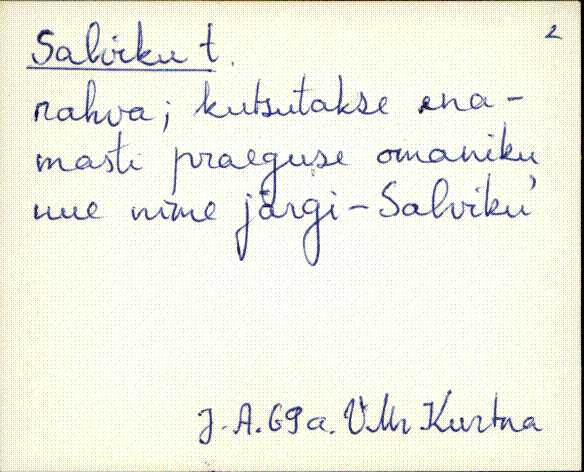 2
Salviku t.
rahva; kutsutakse ena-
masti praeguse omaniku
uue nime järgi – Salviku'
J. A. 69 a. VMr Kurtna